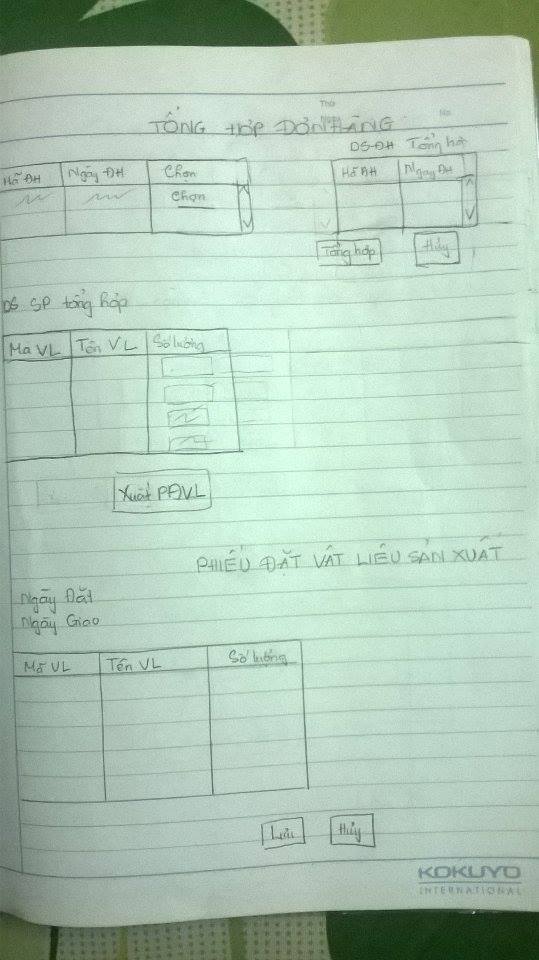 Thứ
No
TỔNG HỢP ĐƠN HÀNG
DS-ĐH Tổng hợ
Mã ĐH Ngày ĐH Chọn
Chọn
Mã ĐH Ngày ĐH
Tổng hợp Hủy
DS SP tổng hợp
Mã VL Tên VL Số lượng
Xuất PĐVL
PHIẾU ĐẶT VẬT LIỆU SẢN XUẤT
Ngày Đặt
Ngày Giao
Mã VL Tên VL Số lượng
Lưu Hủy
KOKUYO
INTERNATIONAL